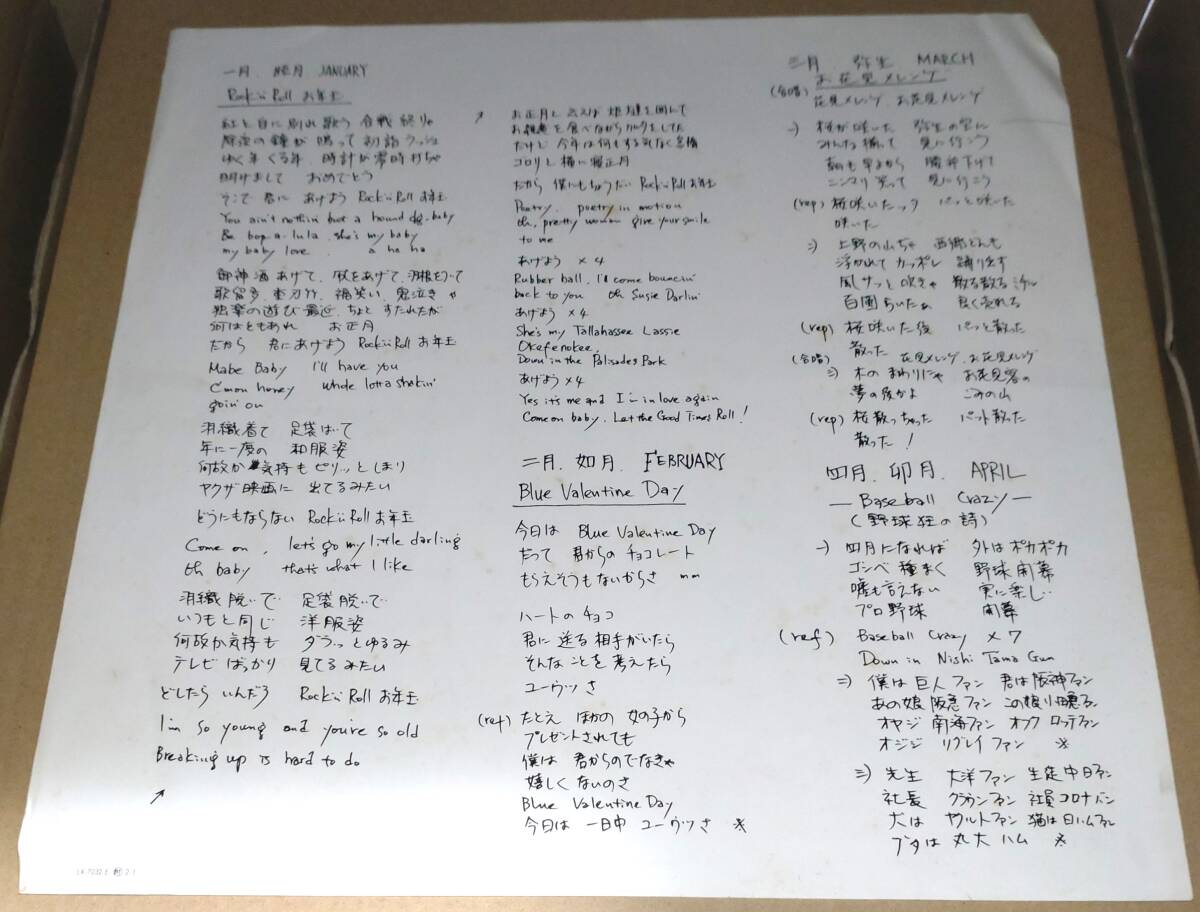 一月. 睦月 JANUARY
Rock'n Roll お年玉
紅と白に別れ歌う 合戦 終りゃ
除夜の鐘が 鳴って 初詣ラッシュ
ゆく年くる年. 時計が零時打ちゃ
明けまして おめでとう
そこで 君に あげよう Rock'n Roll お年玉
You ain't nothin but a hound dog. baby
Be bop-a-lula she's my baby
my baby love. a ha ha
御神酒あげて.
歌留多. 福笑い. 凧泣きゃ
独楽の遊び 最近. ちょと すたれたが
何はともあれ お正月
だから 君にあげよう Rock'n Roll お年玉
Mabe Baby I'll have you
C'mon honey whole lotta shakin'
goin' on
羽織着て 足袋はいて
年に一度の 和服姿
何故か 気持もピリッとしまり
ヤクザ映画に 出てるみたい
どうにもならない Rock'n Roll お年玉
Come on, let's go my little darling
Oh baby that's what I like
羽織脱いで 足袋脱いで
いつもと同じ 洋服姿
何故か気持も ダラっとゆるみ
テレビばっかり 見てるみたい
どしたら いんだろ Rock'n Roll お年玉
I'm so young and you're so old
Breaking up is hard to do
↗
↗ お正月と云えば 炬燵を囲んで
お雑煮を食べながらカルタをした
だけど 今年は何もする気なく
コロリと横に寝正月
だから 僕にもちょうだい Rock'n Roll お年玉
Poetry, poetry in motion
Oh, pretty woman give your smile
to me
あげよう × 4
Rubber ball, I'll come bouncin'
back to you Oh Susie Darlin'
あげよう × 4
She's my Tallahassee Lassie
Okefenokee,
Down in the Palisades Park
あげよう × 4
Yes it's me and I'm in love again
Come on baby, Let the Good Times Roll!
二月. 如月. FEBRUARY
Blue Valentine Day
今日は Blue Valentine Day
だって 君からの チョコレート
もらえそうもないからさ mm
ハートのチョコ
君に 送る 相手がいたら
そんなことを 考えたら
ユーウツさ
(ref) たとえ ほかの 女の子から
プレゼントされても
僕は 君からのでなきゃ
嬉しくないのさ
Blue Valentine Day
今日は 一日中 ユーウツさ ※
三月. 弥生 MARCH
お花見メレンゲ
(合唱) 花見メレンゲ お花見メレンゲ
一) 桜が咲いた 弥生の空に
みんな揃って 見に行こう
朝も早よから 下げて
ニンマリ笑って 見に行こう
(rep) 桜咲いたック パッと咲いた
咲いた
二) 上野の山にゃ 西郷どんも
浮かれて カッポレ 踊り出す
風サッと吹きゃ 散る散る
百円 良く売れる
(rep) 桜咲いた後 パッと散った
散った
(合唱) 花見メレンゲ お花見メレンゲ
三) 木の まわりにゃ お花見客の
夢の後かよ ごみの山
(rep) 桜散っちゃった パット散った
散った!
四月. 卯月. APRIL
— Baseball Crazy —
(野球狂の詩)
一) 四月になれば 外はポカポカ
ゴンベ 種まく 野球開幕
嘘も言えない 実に楽し
プロ野球 開幕
(ref) Baseball Crazy × 7
Down in Nishi Tama Gun
二) 僕は 巨人ファン 君は阪神ファン
あの娘 阪急ファン この娘
オヤジ 南海ファン オフクロ ロッテファン
オジジ リグレイファン ※
三) 先生 大洋ファン 生徒中日ファン
社長 クラウンファン 社員コロナバン
犬は ヤクルトファン 猫は日ハムファン
ブタは 丸大ハム ※
LX-7032-E